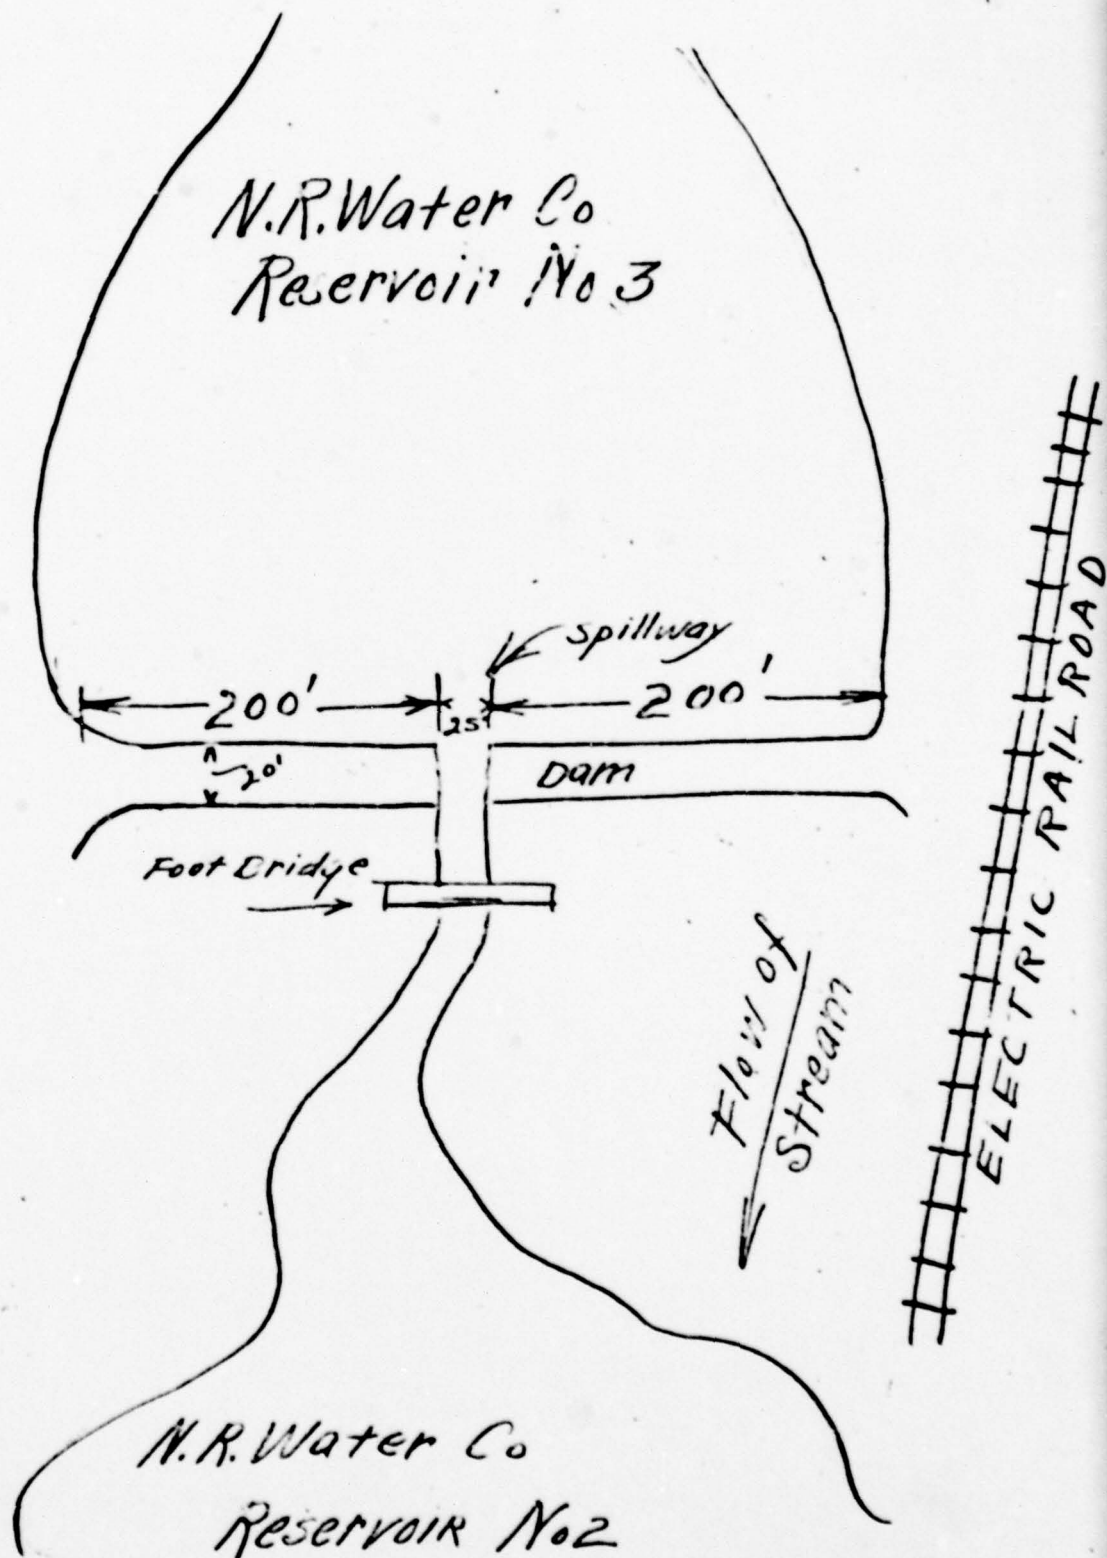 N.R. Water Co
Reservoir No 3
Spillway
200'
25'
200'
20'
Dam
Foot Bridge
Flow of
Stream
ELECTRIC RAILROAD
N.R. Water Co
Reservoir No 2